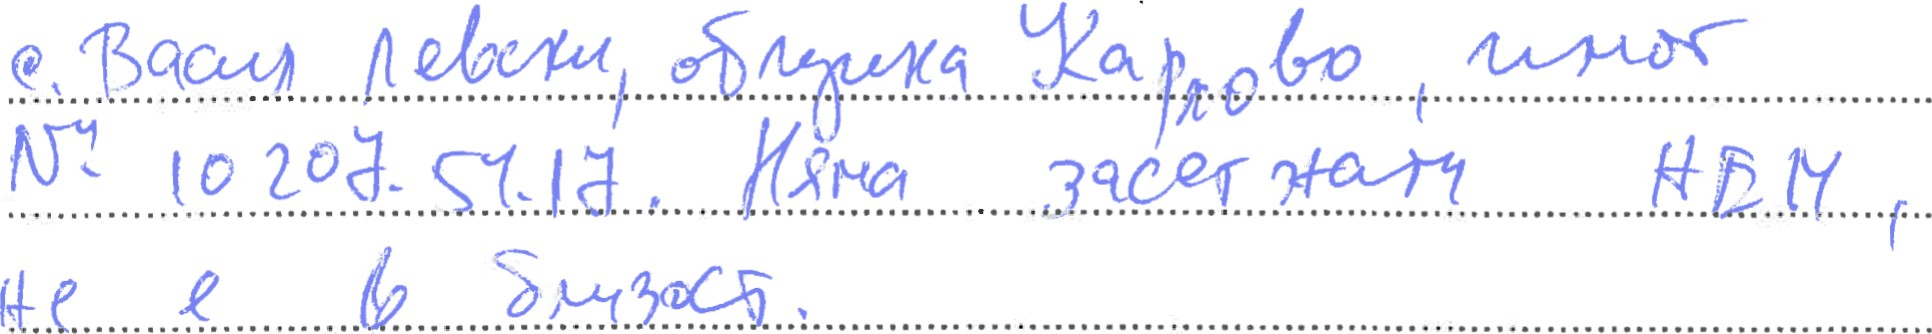 с. Васил Левски, община Карлово, имот
№ 10207.54.17. Няма засегнати НВМ,
не е в близост.